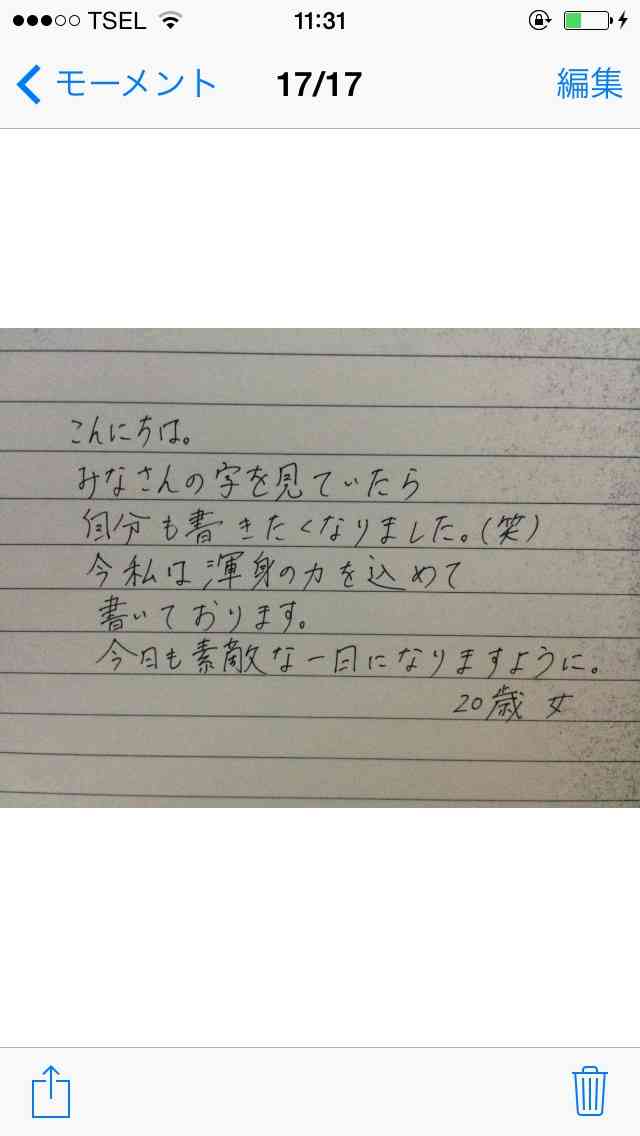 TSEL 11:31
モーメント 17/17 編集
こんにちは。
みなさんの字を見ていたら
自分も書きたくなりました。(笑)
今私は渾身の力を込めて
書いております。
今日も素敵な一日になりますように。
20歳 女